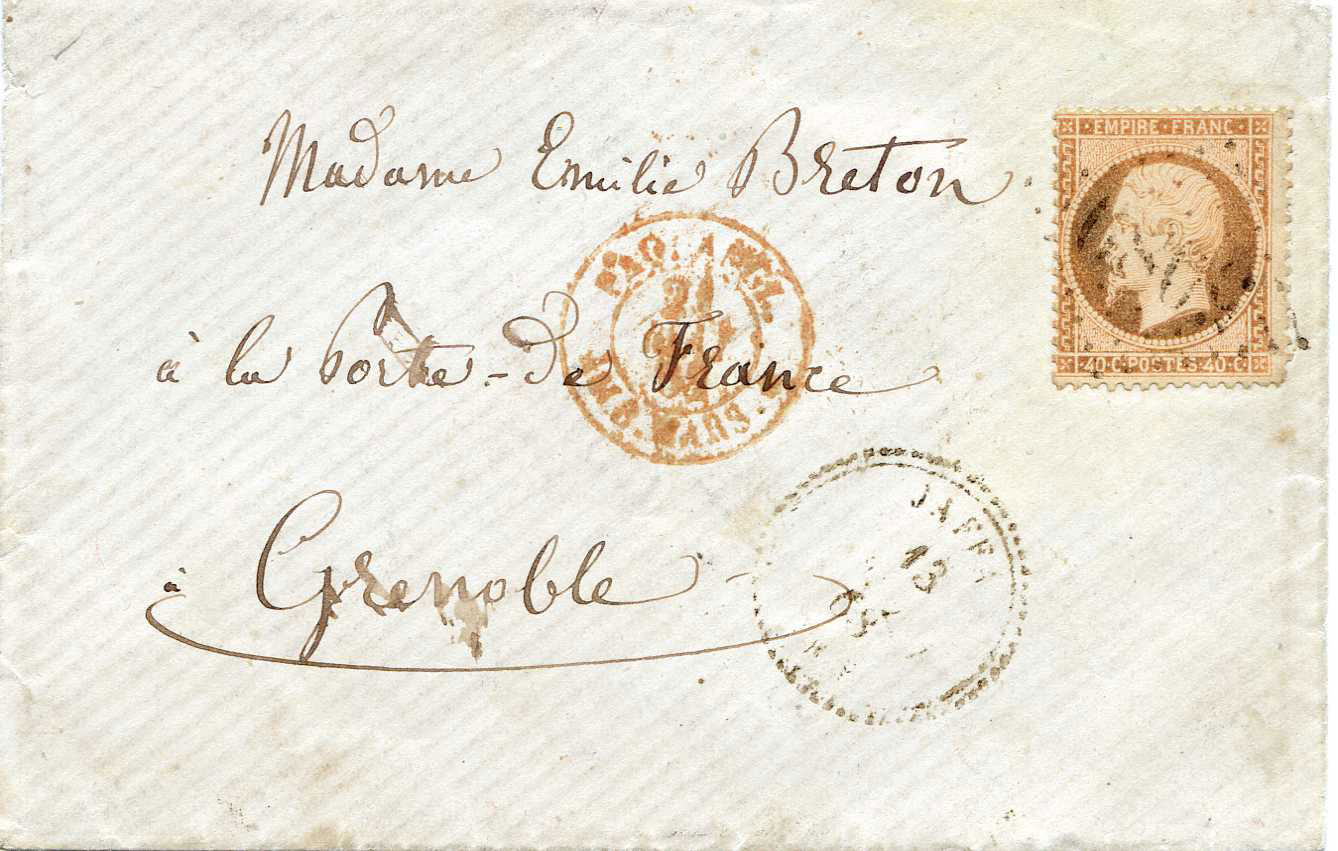 Madame Emilie Breton
à la Porte-de France
à Grenoble
EMPIRE FRANC
40·C·POSTES·40·C
PAQ. ANGL.
MARS
JAFFA
13